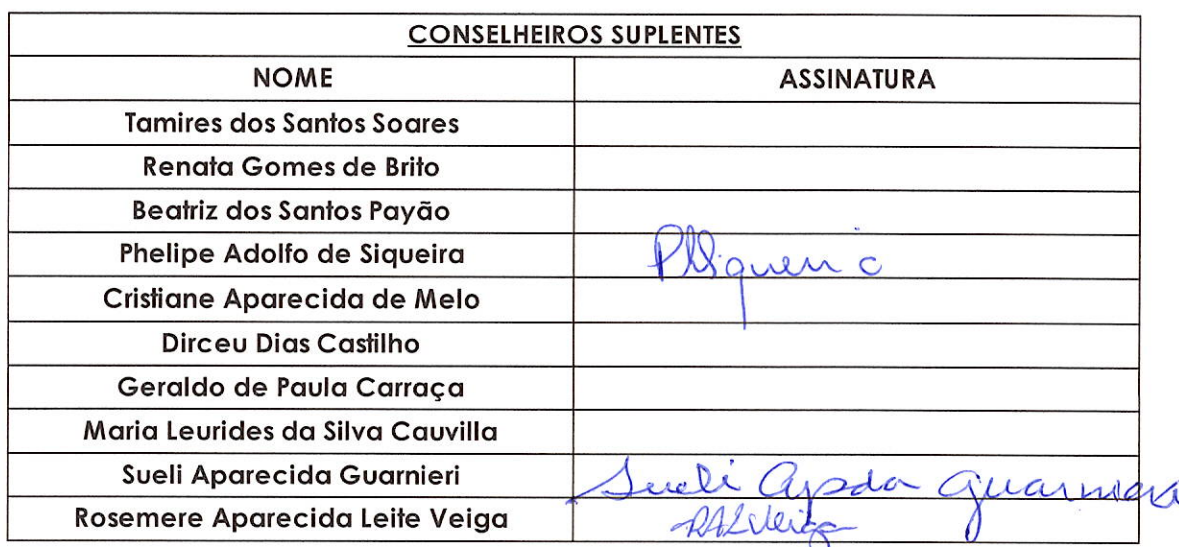 CONSELHEIROS SUPLENTES
NOME ASSINATURA
Tamires dos Santos Soares
Renata Gomes de Brito
Beatriz dos Santos Payão
Phelipe Adolfo de Siqueira PASiqueira
Cristiane Aparecida de Melo
Dirceu Dias Castilho
Geraldo de Paula Carraça
Maria Leurides da Silva Cauvilla
Sueli Aparecida Guarnieri Sueli Apda Guarnieri
Rosemere Aparecida Leite Veiga RALVeiga